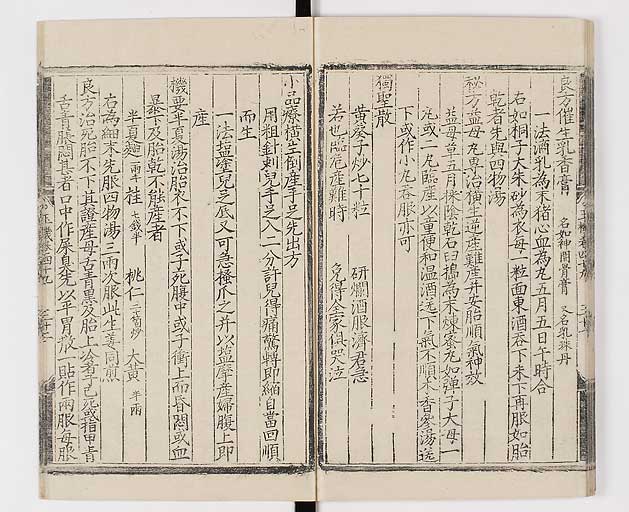 良方催生乳香膏 名如神開骨膏 又名乳珠丹
一法滴乳為末猪心血為丸五月五日午時合
右如桐子大朱砂為衣每一粒面東酒吞下未下再服如胎
乾者先與四物湯
秘方益母丸專治橫生逆產難產并安胎順氣神效
益母草五月採陰乾石臼搗為末煉蜜丸如彈子大每一
丸或二丸臨產以童便和溫酒送下氣不順木香參湯送
下或作小丸吞服亦可
獨聖散
黃葵子炒七十粒 研爛酒服濟君急
若也臨危產難時 免得全家俱哭泣
小品療橫生倒產手足先出方
用粗針刺兒手足入二分許兒得痛驚轉即縮自當回順
而生
一法塩塗兒足底又可急搔爪之并以塩摩產婦腹上即
產
機要半夏湯治胎衣不下或子死腹中或子衝上而昏悶或血
暴下及胎乾不能產者
半夏麴 一兩半 桂 七錢半 桃仁 三十箇炒 大黃 半兩
右為細末先服四物湯三兩次服此生姜同煎
良方治死胎不下其證產母舌青黑及胎上冷者已死或指甲青
舌青脹悶甚者口中作屎臭先以平胃散一貼作兩服每服